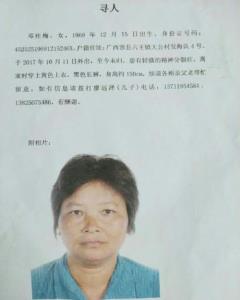 寻人
邓桂梅，女，1969 年 12 月 15 日出生，身份证号码：
452525196912152463，户籍住址：广西容县六王镇大公村发梅队4号，
于 2017 年 10 月 11 日外出，至今未归，患有轻微的精神分裂症，离
家时穿上黄色上衣，黑色长裤，身高约 150cm，恳请各相亲父老帮忙
留意，如有信息请拨打廖远泽(儿子)电话：13711954584，
13825075486，有酬谢。
附相片：